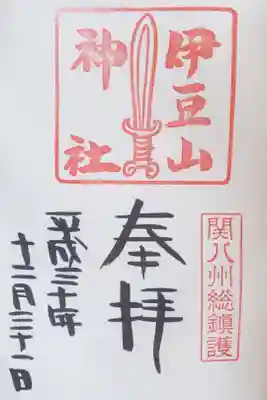 伊豆山
神社
関八州総鎮護
奉拝
平成三十年
十二月三十一日